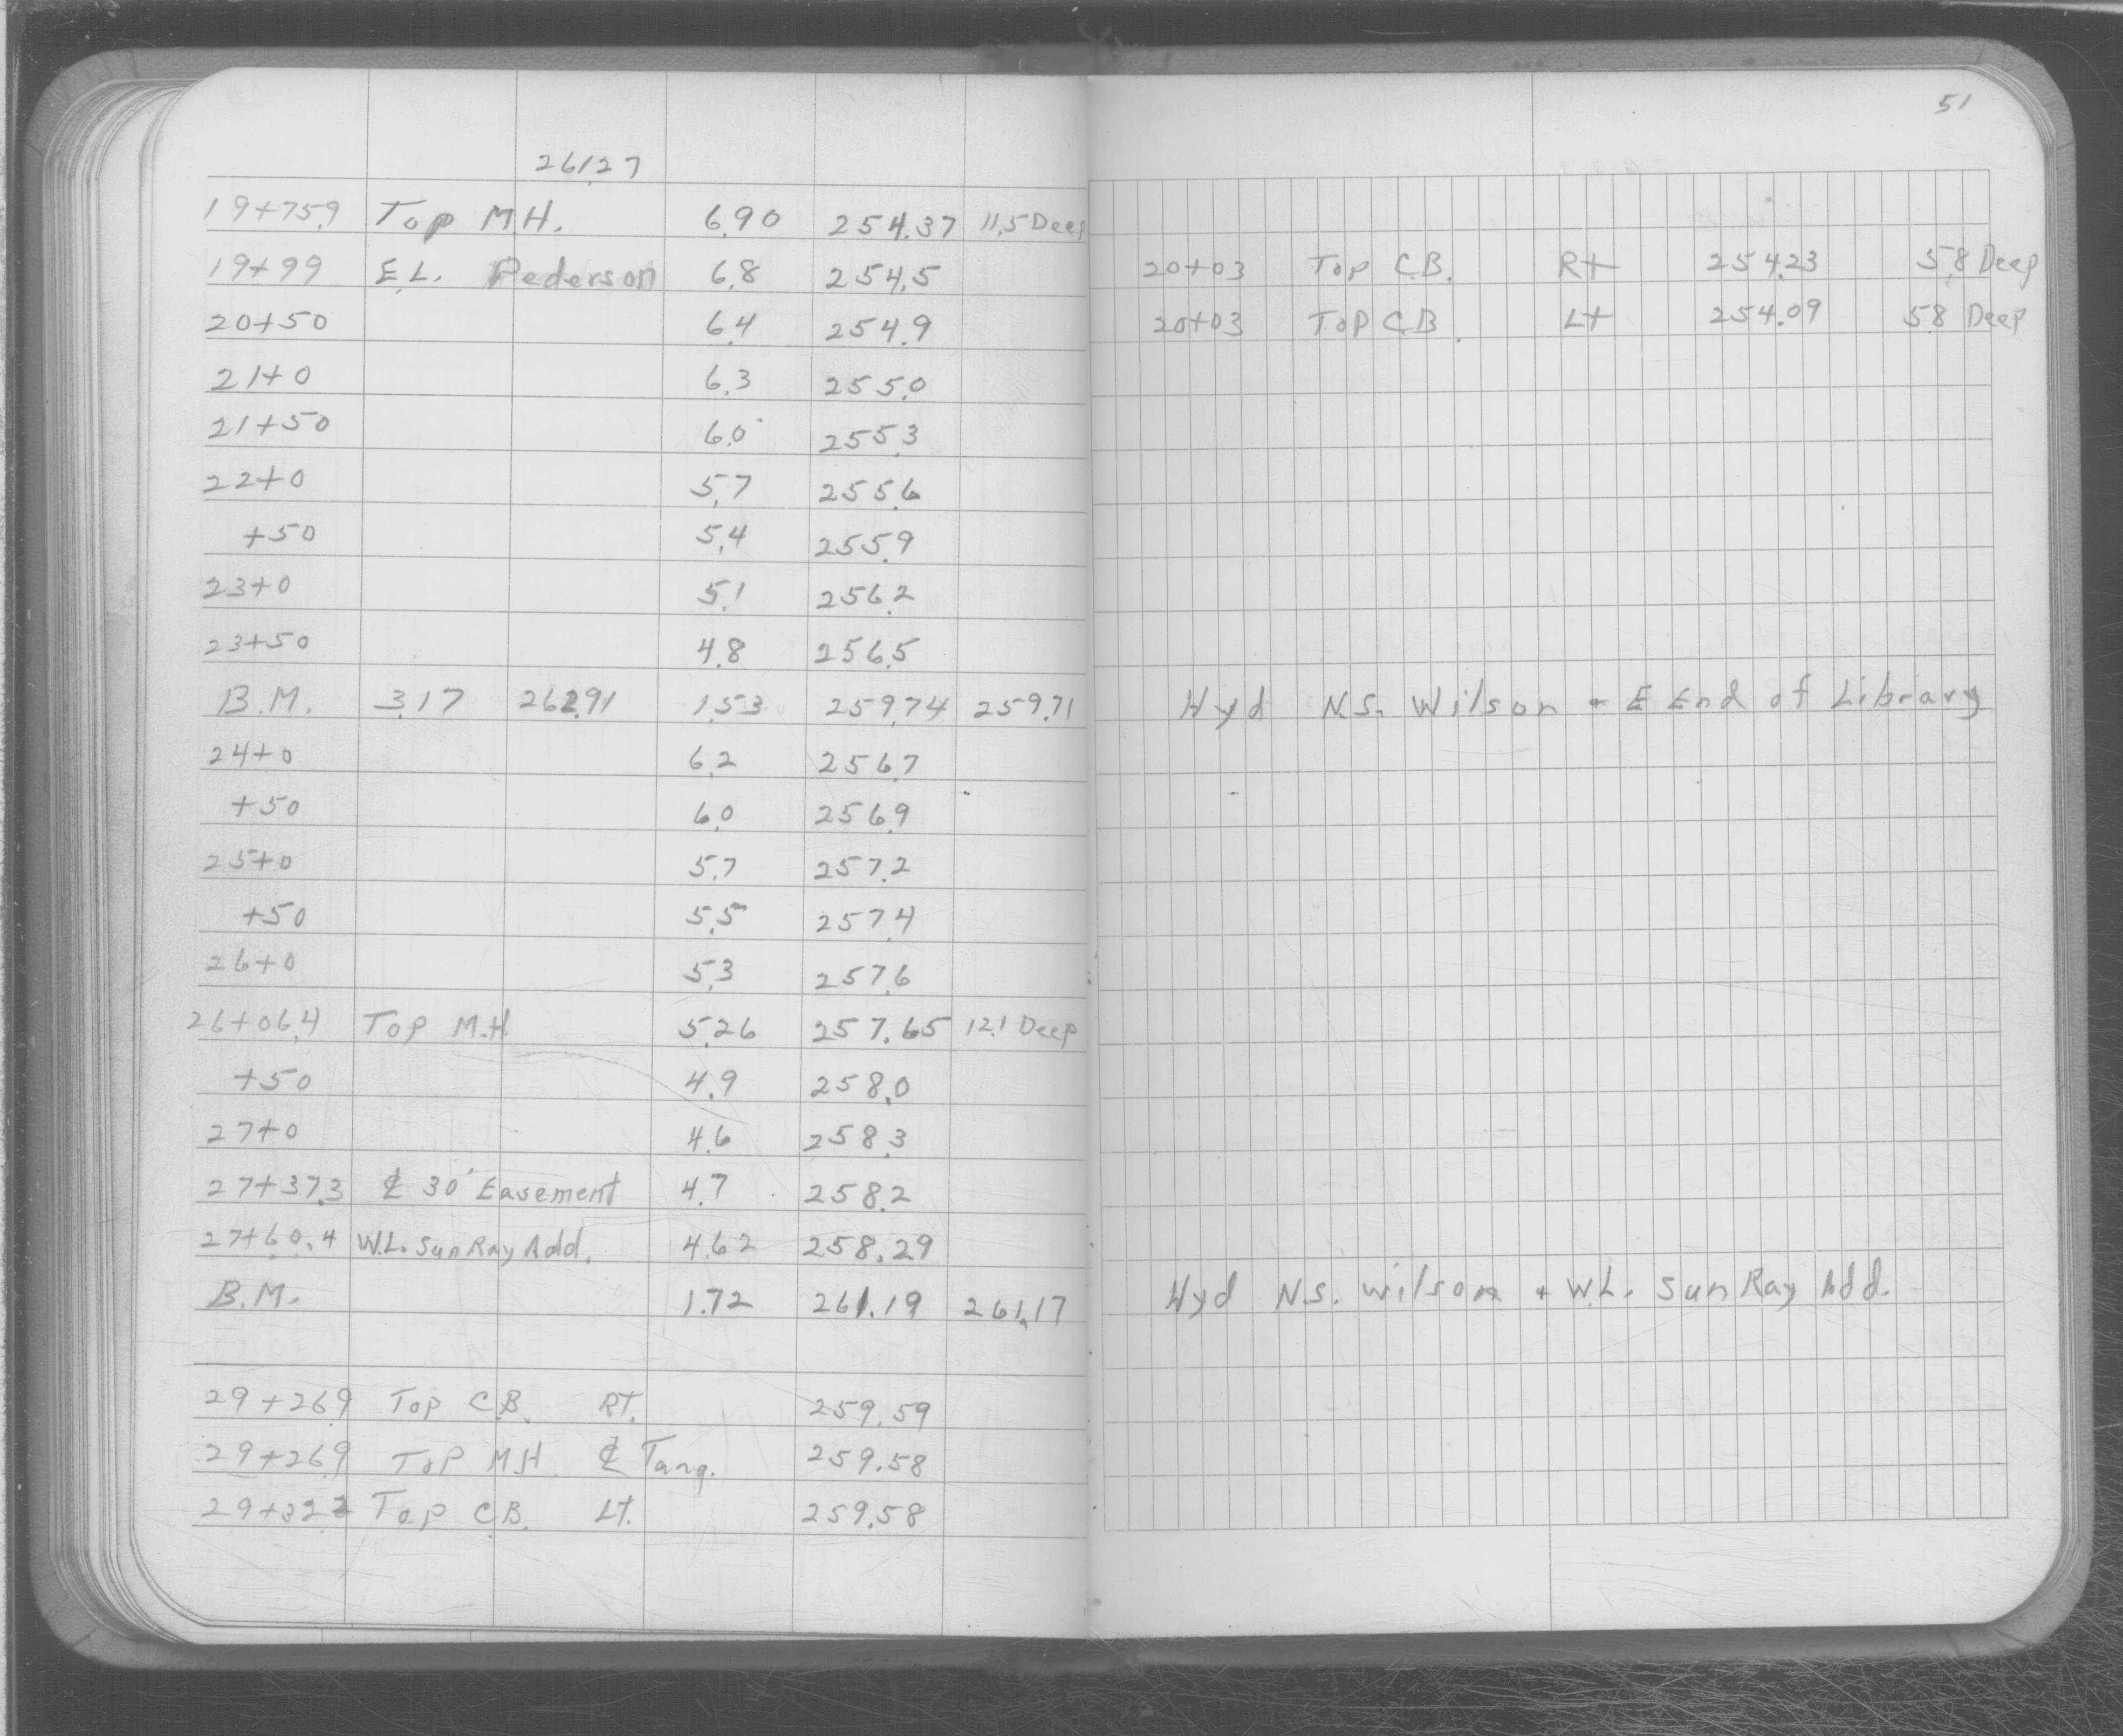 51
261.27
19+75.9 Top M.H. 6.90 254.37 11.5 Deep
19+99 E.L. Pederson 6.8 254.5 20+03 Top C.B. Rt 254.23 5.8 Deep
20+50 6.4 254.9 20+03 Top C.B. Lt 254.09 5.8 Deep
21+0 6.3 255.0
21+50 6.0 255.3
22+0 5.7 255.6
+50 5.4 255.9
23+0 5.1 256.2
23+50 4.8 256.5
B.M. 3.17 262.91 1.53 259.74 259.71 Hyd N.S. Wilson + E End of Library
24+0 6.2 256.7
+50 6.0 256.9
25+0 5.7 257.2
+50 5.5 257.4
26+0 5.3 257.6
26+06.4 Top M.H 5.26 257.65 12.1 Deep
+50 4.9 258.0
27+0 4.6 258.3
27+37.3 ℄ 30' Easement 4.7 258.2
27+60.4 W.L. Sun Ray Add. 4.62 258.29
B.M. 1.72 261.19 261.17 Hyd N.S. Wilson + W.L. Sun Ray Add.
29+26.9 Top C.B. RT. 259.59
29+26.9 Top M.H. ℄ Tang. 259.58
Top C.B. LT. 259.58